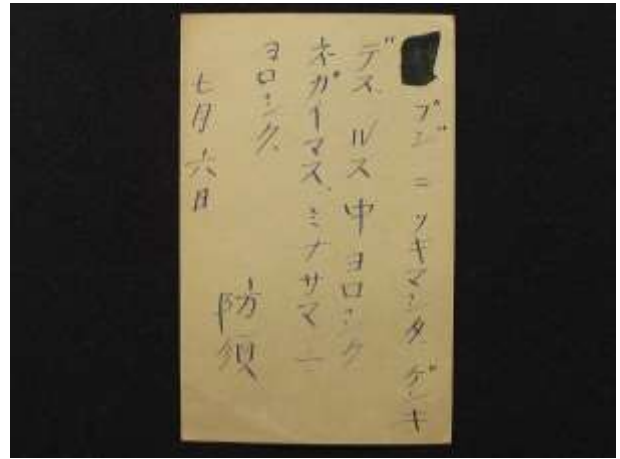 ブジニツキマシタゲンキ
デス、ルス中ヨロシク
ネガイマス、ミナサマニ
ヨロシク、
七月六日
防須